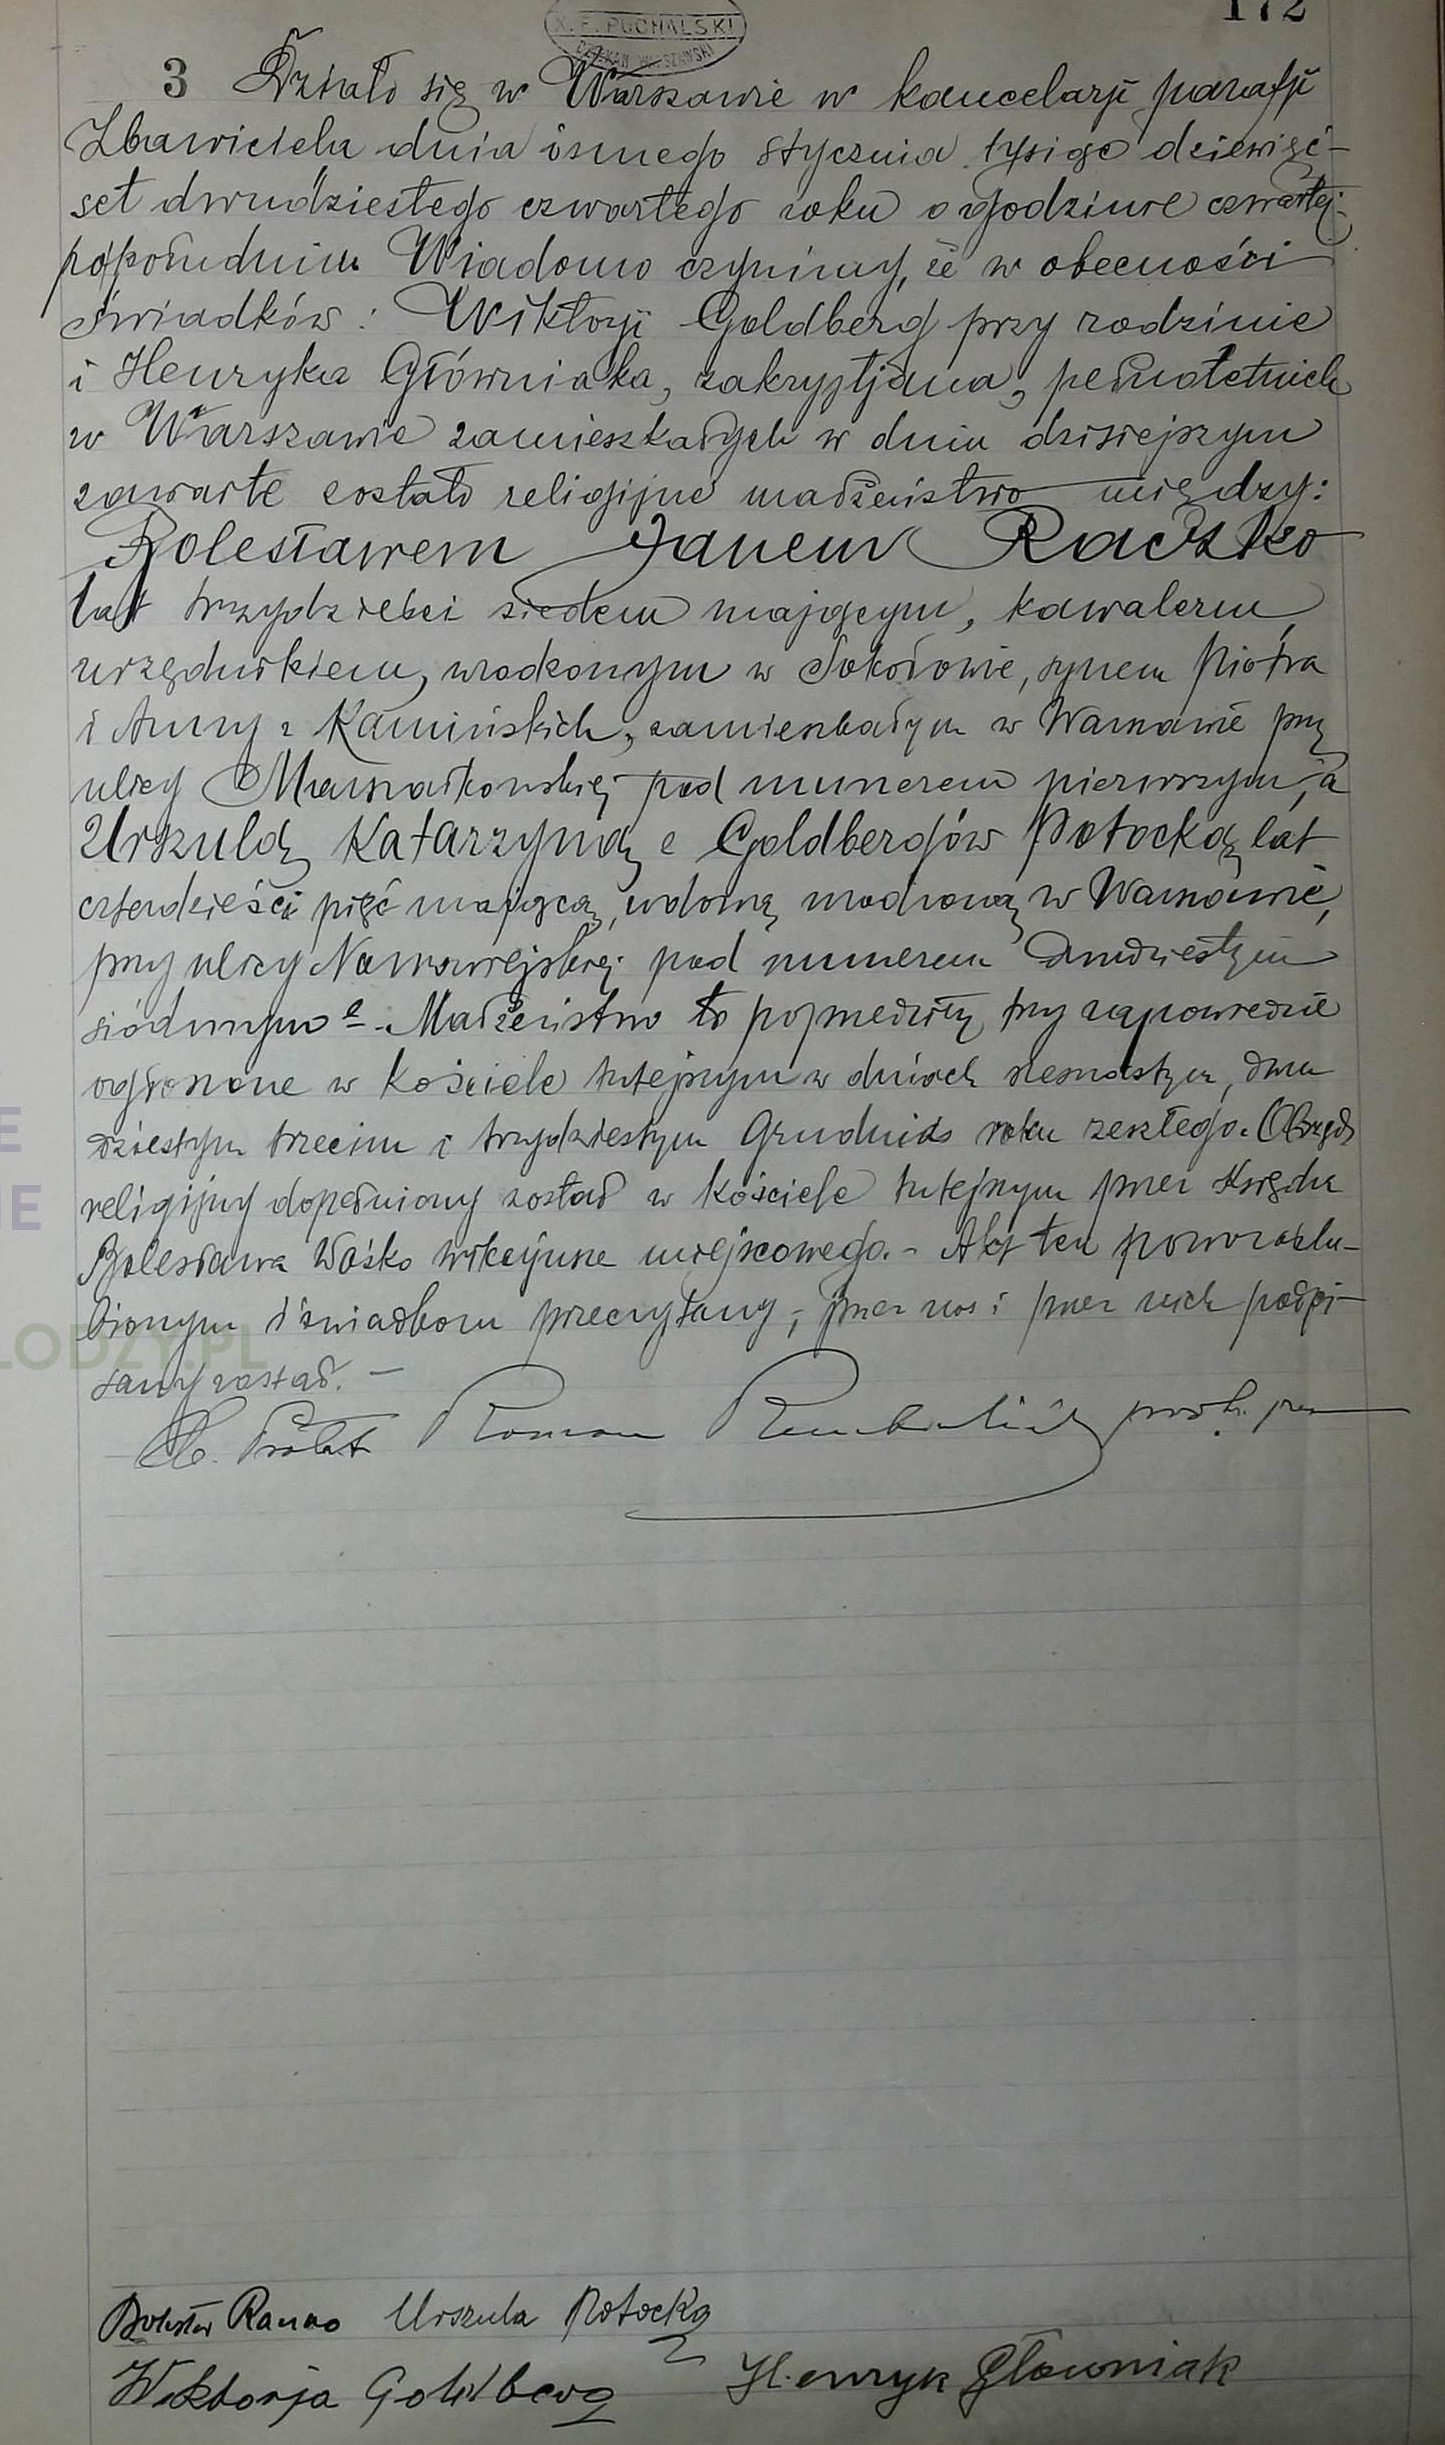 172
X. F. PUCHALSKI
DZIEKAN WARSZAWSKI
3 Działo się w Warszawie w kancelarji parafji
Zbawiciela dnia ósmego stycznia tysiąc dziewięć-
set dwudziestego czwartego roku o godzinie czwartej
popołudniu Wiadomo czynimy, że w obecności
świadków: Wiktorji Goldberg przy rodzinie
i Henryka Główniaka, zakrystjana, pełnoletnich
w Warszawie zamieszkałych w dniu dzisiejszym
zawarte zostało religijne małżeństwo między:
Bolesławem Janem Raczko
lat trzydzieści siedem mającym, kawalerem,
urzędnikiem, urodzonym w Sokołowie, synem Piotra
i Anny z Kamińskich, zamieszkałym w Warszawie przy
ulicy Marszałkowskiej pod numerem pierwszym, a
Urszulą Katarzyną z Goldbergów Potocką lat
czterdzieści pięć mającą, wdową, urodzoną w Warszawie,
przy ulicy Nowowiejskiej pod numerem dwudziestym
siódmym. Małżeństwo to poprzedziły trzy zapowiedzie
ogłoszone w kościele tutejszym w dniach szesnastym, dwu
dziestym trzecim i trzydziestym Grudnia roku zeszłego. Obrzęd
religijny dopełniony został w kościele tutejszym przez Księdza
Bolesława Wośko wikarjusza miejscowego. - Akt ten nowozaślu-
bionym i świadkom przeczytany, przez nas i przez nich podpi-
sany został. -
X. Prałat Roman Rembieliński prob. par
Bolesław Raczko Urszula Potocka
Wiktorja Goldberg Henryk Główniak
LODZY.PL